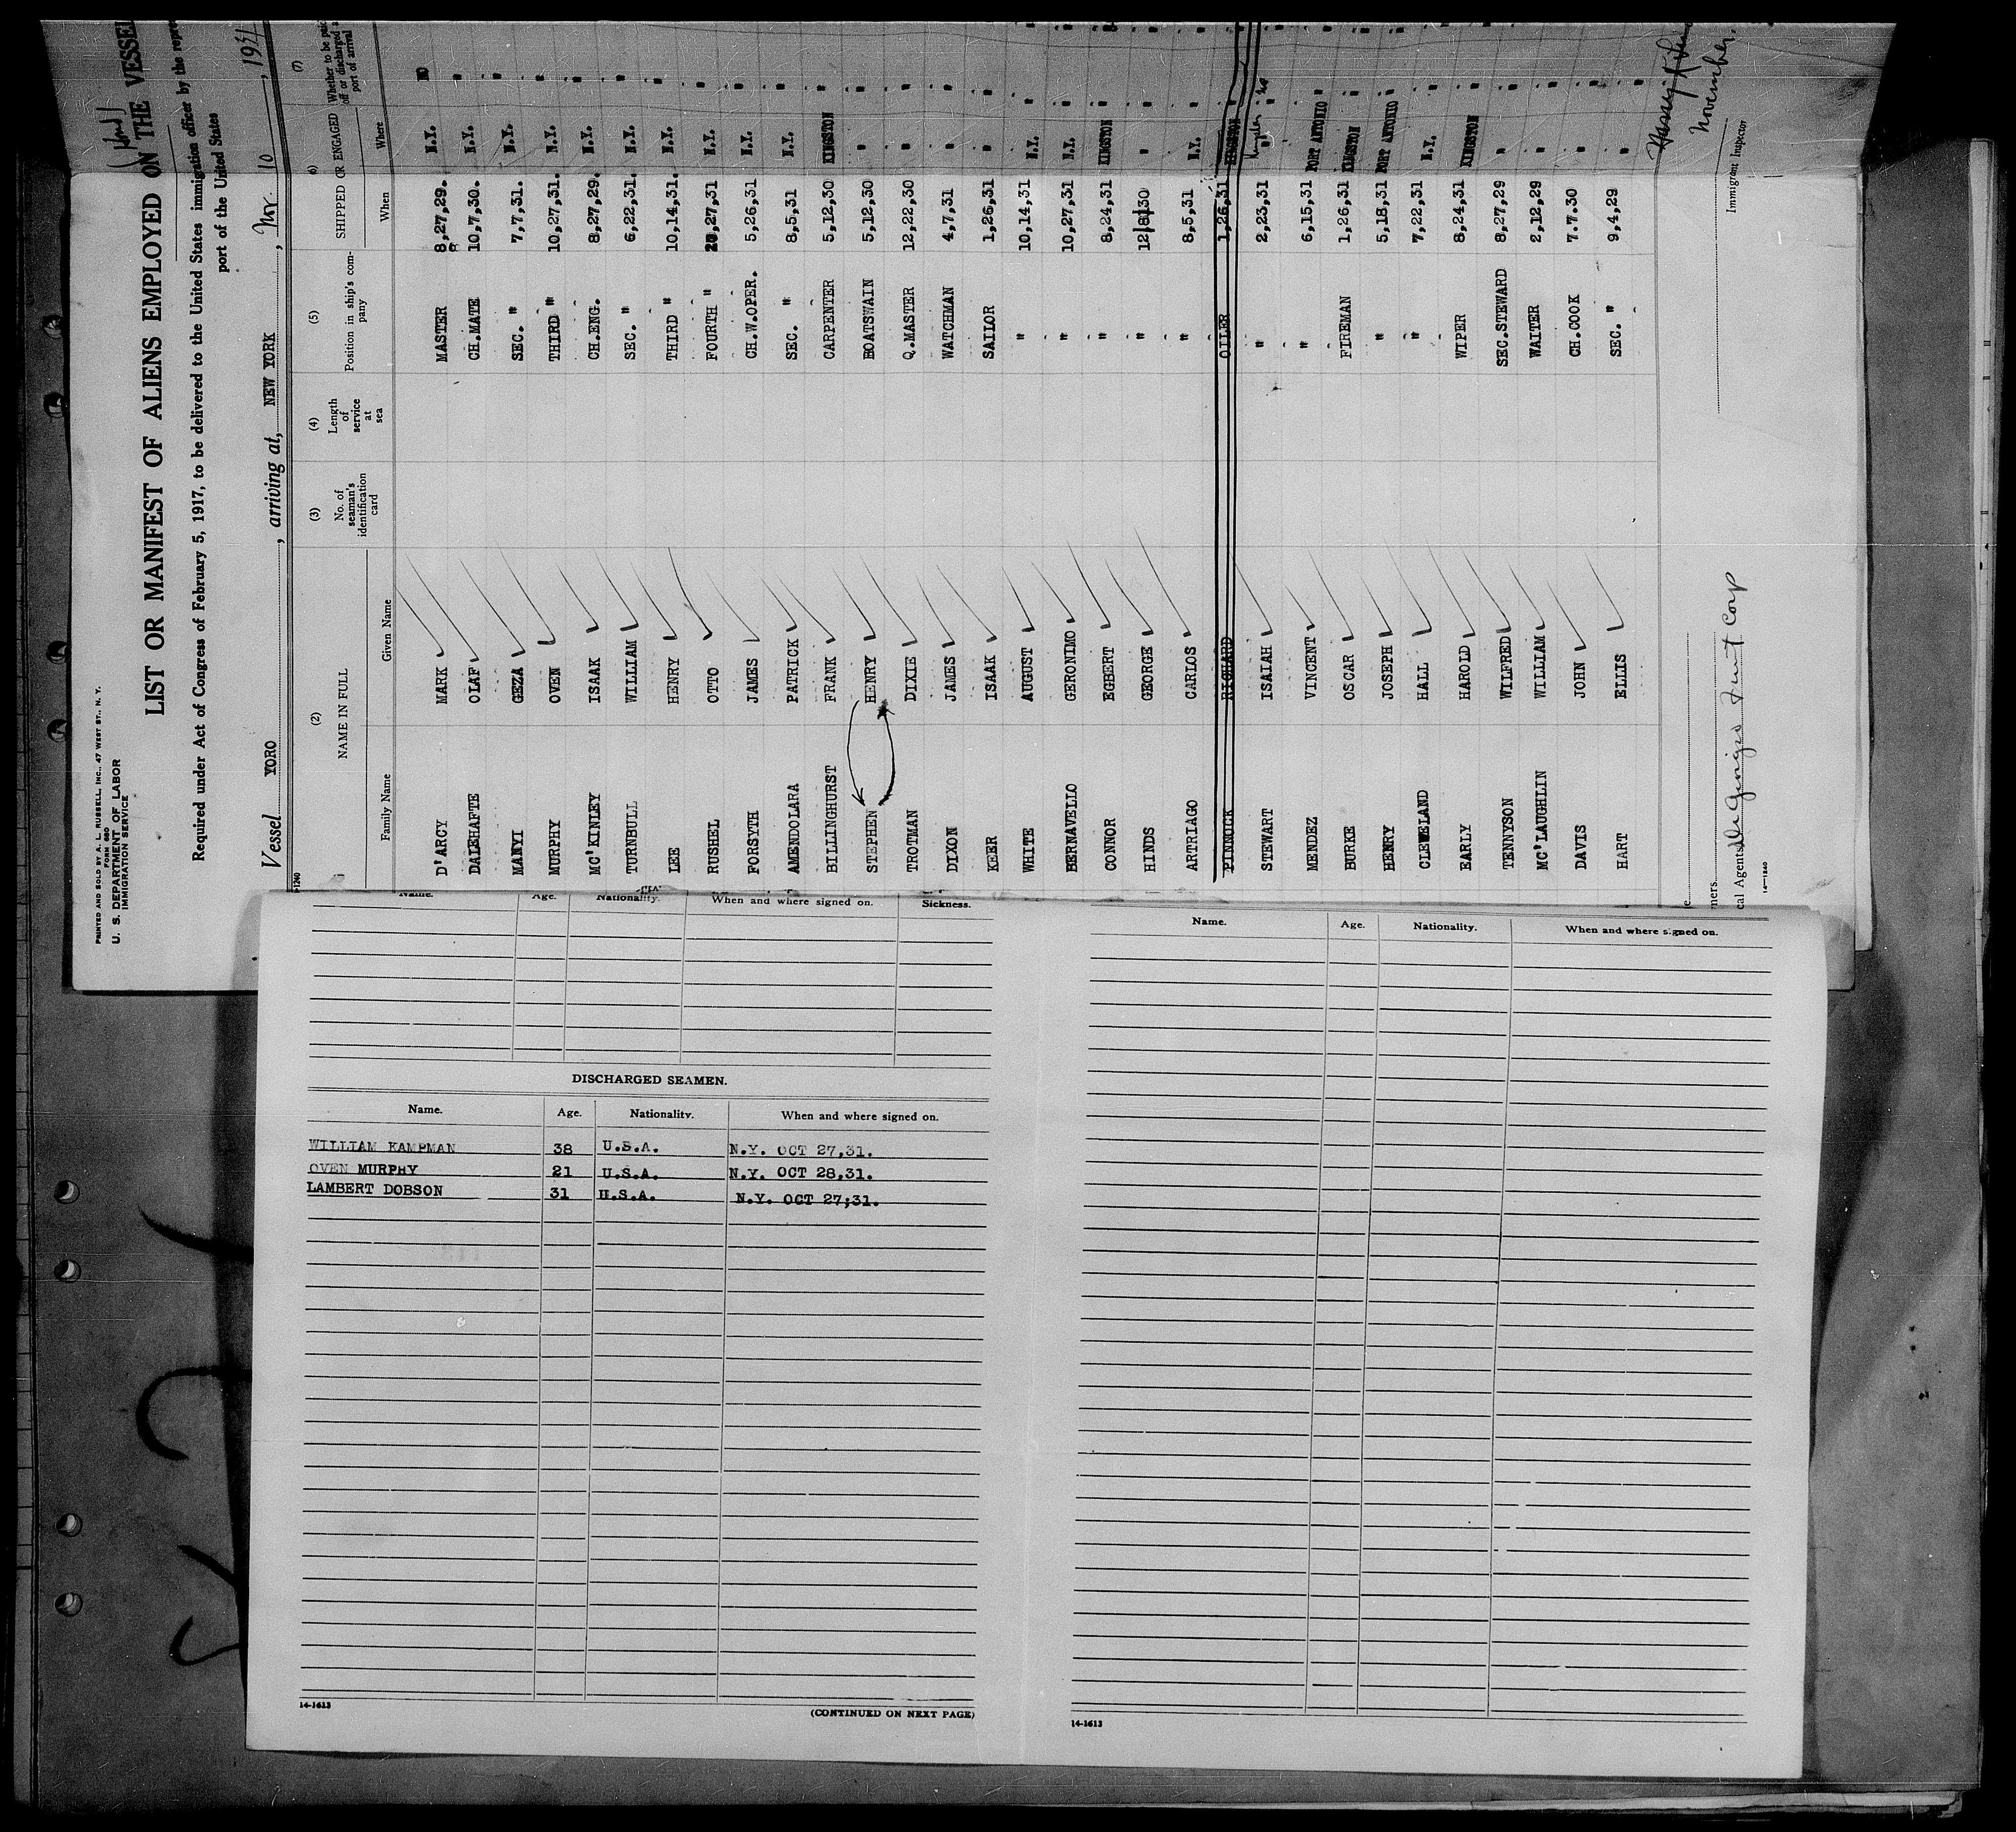 PRINTED AND SOLD BY A. L. RUSSELL, INC., 47 WEST ST., N. Y.
FORM 680
U. S. DEPARTMENT OF LABOR
IMMIGRATION SERVICE
LIST OR MANIFEST OF ALIENS EMPLOYED ON THE VESSEL
Required under Act of Congress of February 5, 1917, to be delivered to the United States immigration officer by the repre
port of the United States
Vessel YORO, arriving at, NEW YORK, Nov 10, 1931
(2) (3) (4) (5) (6) (7)
NAME IN FULL No. of seaman's identification card Length of service at sea Position in ship's company SHIPPED OR ENGAGED Whether to be paid off or discharged port of arrival
Family Name Given Name When Where
D'ARCY MARK MASTER 8,27,29. N.Y. NO
DALEHAFTE OLAF CH.MATE 10,7,30. N.Y. "
MANYI GEZA SEC. " 7,7,31. N.Y. "
MURPHY OVEN THIRD " 10,27,31. N.Y. "
MC'KINLEY ISAAK CH.ENG. 8,27,29. N.Y. "
TURNBULL WILLIAM SEC. " 6,22,31. N.Y. "
LEE HENRY THIRD " 10,14,31. N.Y. "
RUSHEL OTTO FOURTH " 10,27,31 N.Y. "
FORSYTH JAMES CH.W.OPER. 5,26,31 N.Y. "
AMENDOLARA PATRICK SEC. " 8,5,31 N.Y. "
BILLINGHURST FRANK CARPENTER 5,12,30 KINGSTON "
STEPHEN HENRY BOATSWAIN 5,12,30 " "
TROTMAN DIXIE Q.MASTER 12,22,30 " "
DIXON JAMES WATCHMAN 4,7,31 " "
KEER ISAAK SAILOR 1,26,31 " "
WHITE AUGUST " 10,14,31 N.Y. "
BERNAVELLO GERONIMO " 10,27,31 N.Y. "
CONNOR EGBERT " 8,24,31 KINGSTON "
HINDS GEORGE " 12,8,30 " "
ARTRIAGO CARLOS " 8,5,31 N.Y. "
PINNOCK RICHARD OILER 1,26,31 KINGSTON "
STEWART ISAIAH " 2,23,31 Kingston " no
MENDEZ VINCENT " 6,15,31 PORT ANTONIO "
BURKE OSCAR FIREMAN 1,26,31 KINGSTON "
HENRY JOSEPH " 5,18,31 PORT ANTONIO "
CLEWELAND HALL " 7,22,31 N.Y. "
EARLY HAROLD WIPER 8,24,31 KINGSTON "
TENNYSON WILFRED SEC.STEWARD 8,27,29 " "
MC'LAUGHLIN WILLIAM WAITER 2,12,29 " "
DAVIS JOHN CH.COOK 7.7.30 " "
HART ELLIS SEC. " 9,4,29 " "
November.
Immigrant Inspector
cal Agents Di Giorgio Fruit Corp
14—1240
Name. Age. Nationality. When and where signed on. Sickness.
DISCHARGED SEAMEN.
Name. Age. Nationality. When and where signed on.
WILLIAM KAMPMAN 38 U.S.A. N.Y. OCT 27,31.
OVEN MURPHY 21 U.S.A. N.Y. OCT 28,31.
LAMBERT DOBSON 31 U.S.A. N.Y. OCT 27;31.
14-1613
(CONTINUED ON NEXT PAGE)
Name. Age. Nationality. When and where signed on.
14-1613